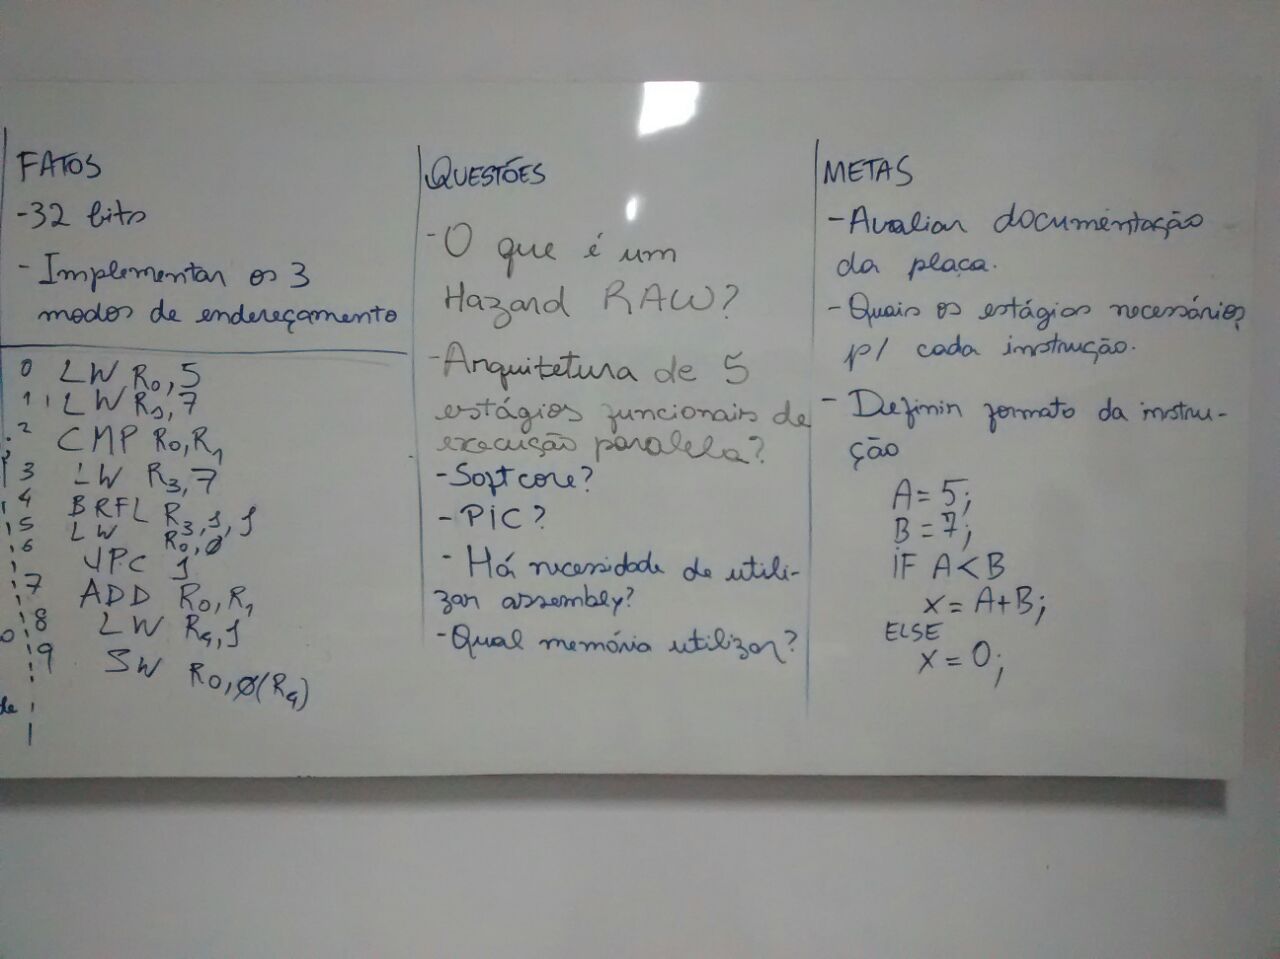 FATOS
-32 bits
- Implementar os 3
modos de endereçamento
0 LW R0,5
1 LW R1,7
2 CMP R0,R1
3 LW R3,7
4 BRFL R3,1,1
5 LW R0,Ø
6 JPC 1
7 ADD R0,R1
8 LW R9,1
9 SW R0,Ø(R9)
QUESTÕES
- O que é um
Hazard RAW?
- Arquitetura de 5
estágios funcionais de
execução paralela?
- Softcore?
- PIC?
- Há necessidade de utili-
zar assembly?
- Qual memória utilizar?
METAS
- Avaliar documentação
da placa.
- Quais os estágios necessários
p/ cada instrução.
- Definir formato da instru-
ção
A = 5;
B = 7;
IF A < B
x = A+B;
ELSE
x = 0;